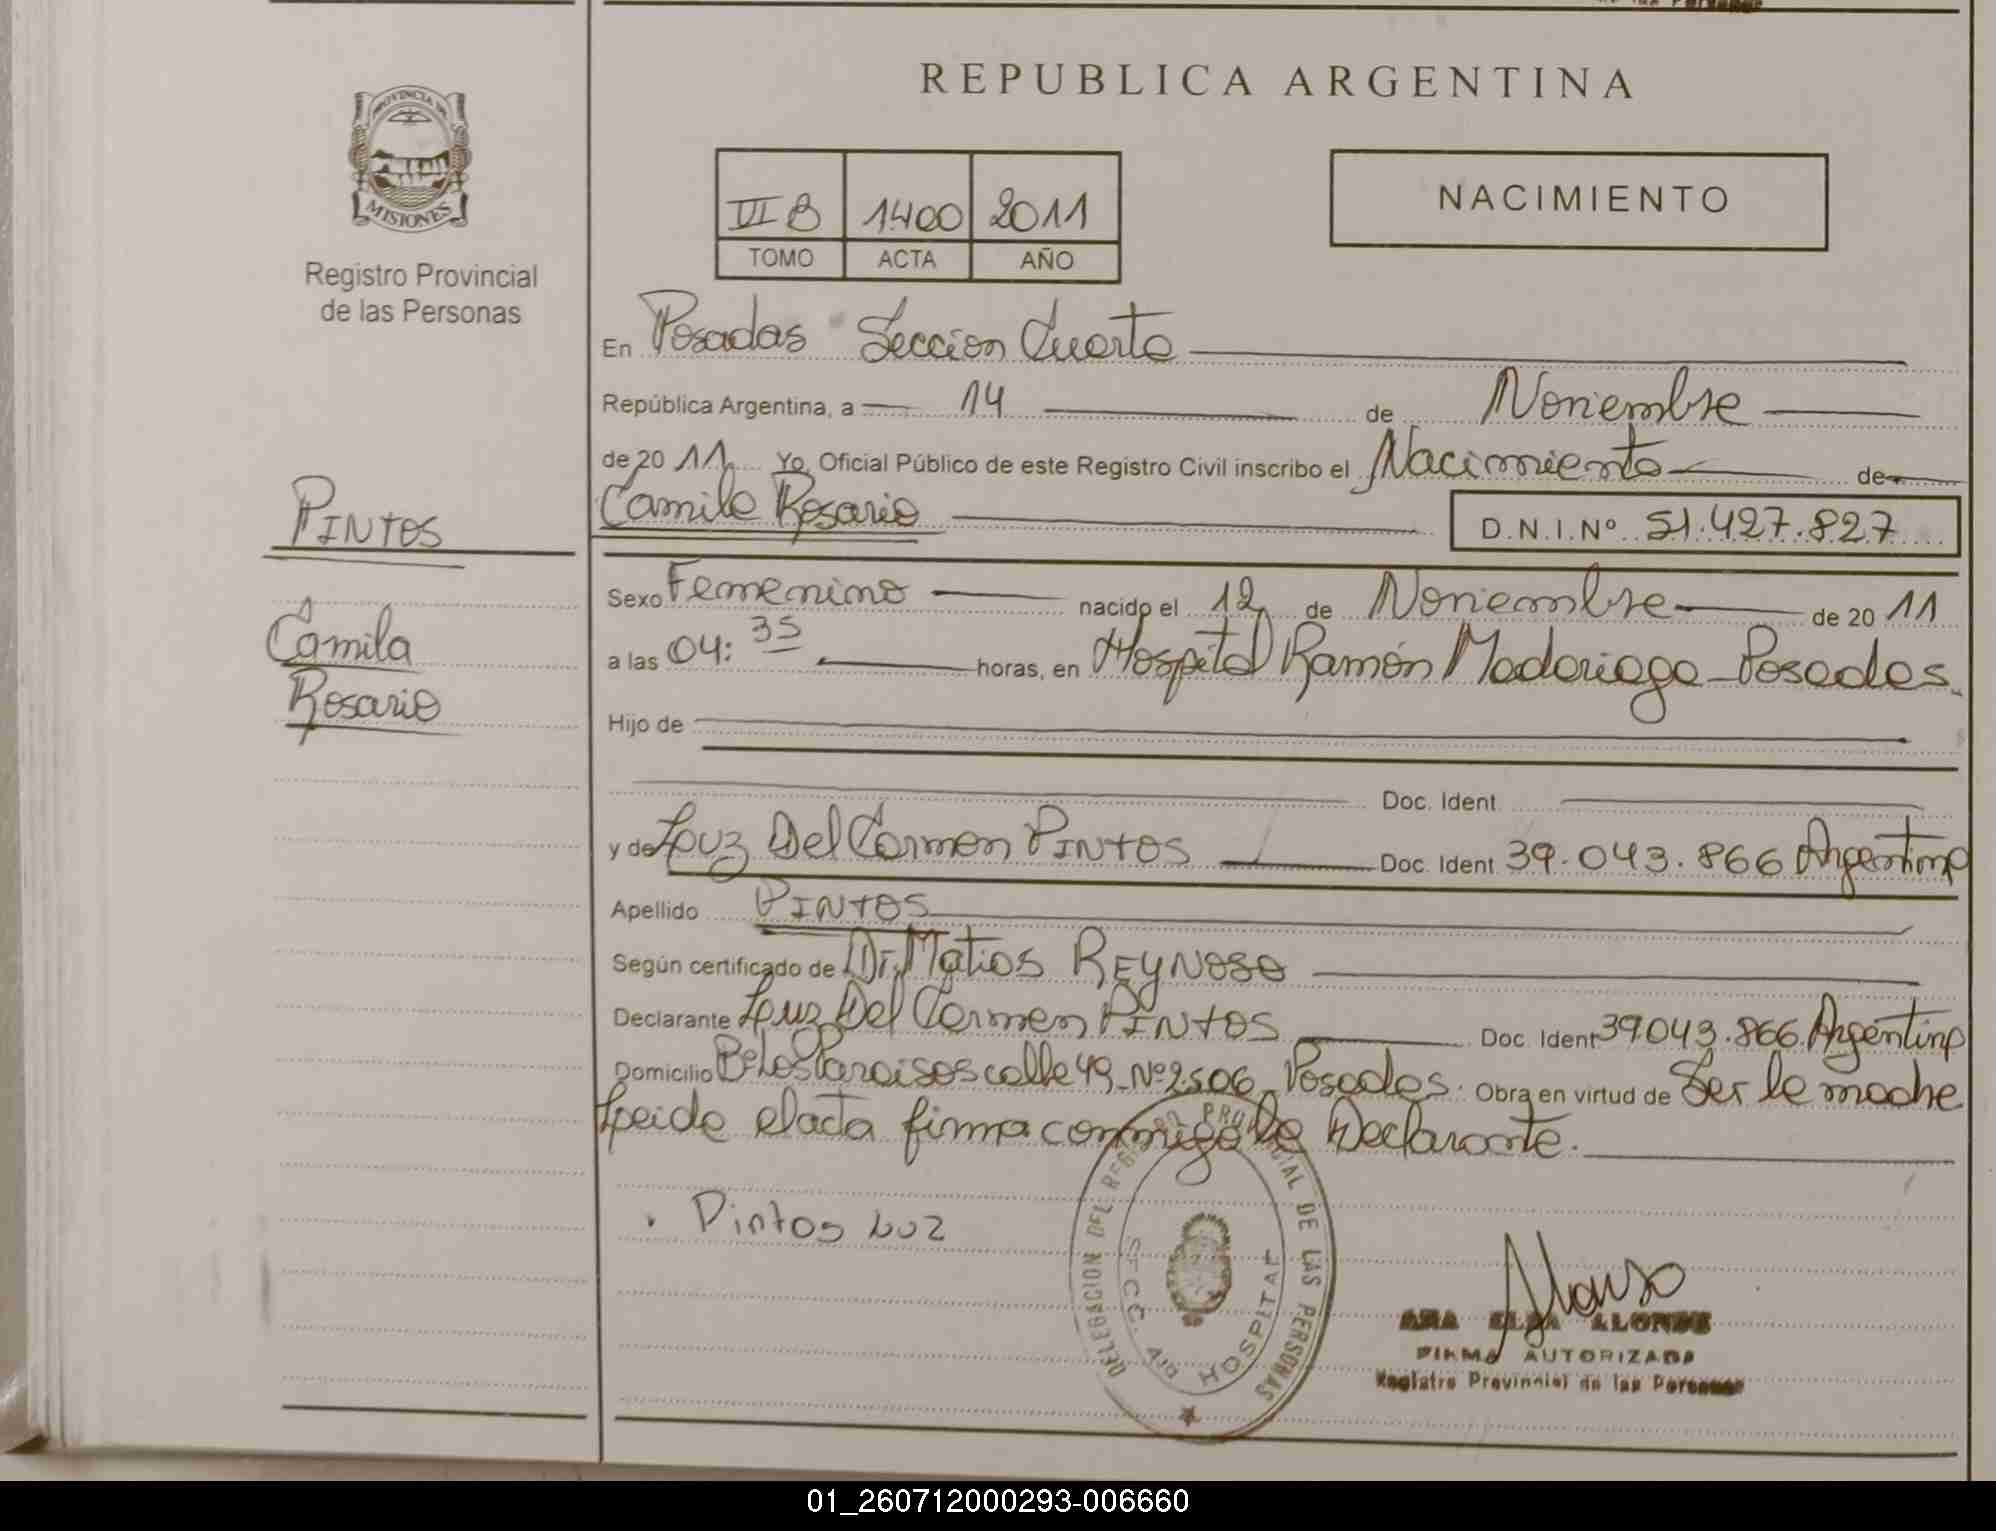 REPUBLICA ARGENTINA
PROVINCIA DE
MISIONES
Registro Provincial
de las Personas
VI B 1400 2011
TOMO ACTA AÑO
NACIMIENTO
En Posadas Seccion Cuarta
República Argentina, a 14 de Noviembre
de 20 11 Yo, Oficial Público de este Registro Civil inscribo el Nacimiento de
Camila Rosario D.N.I.Nº 51.427.827
PINTOS
Camila
Rosario
Sexo Femenino nacido el 12 de Noviembre de 20 11
a las 04:35 horas, en Hospital Ramón Madariaga - Posadas.
Hijo de
Doc. Ident.
y de Luz Del Carmen PINTOS Doc. Ident. 39.043.866 Argentina
Apellido PINTOS
Según certificado de Dr. Matias REYNOSO
Declarante Luz Del Carmen PINTOS Doc. Ident 39043.866 Argentina
Domicilio Bº Los Paraisos calle 49 - Nº 2506 - Posadas. Obra en virtud de Ser la madre
Leida el acta firma conmigo la Declarante.
Pintos Luz
DELEGACION DEL REGISTRO PROVINCIAL DE LAS PERSONAS
HOSPITAL
Alonso
ANA ELSA ALONSO
FIRMA AUTORIZADA
Registro Provincial de las Personas
01_260712000293-006660